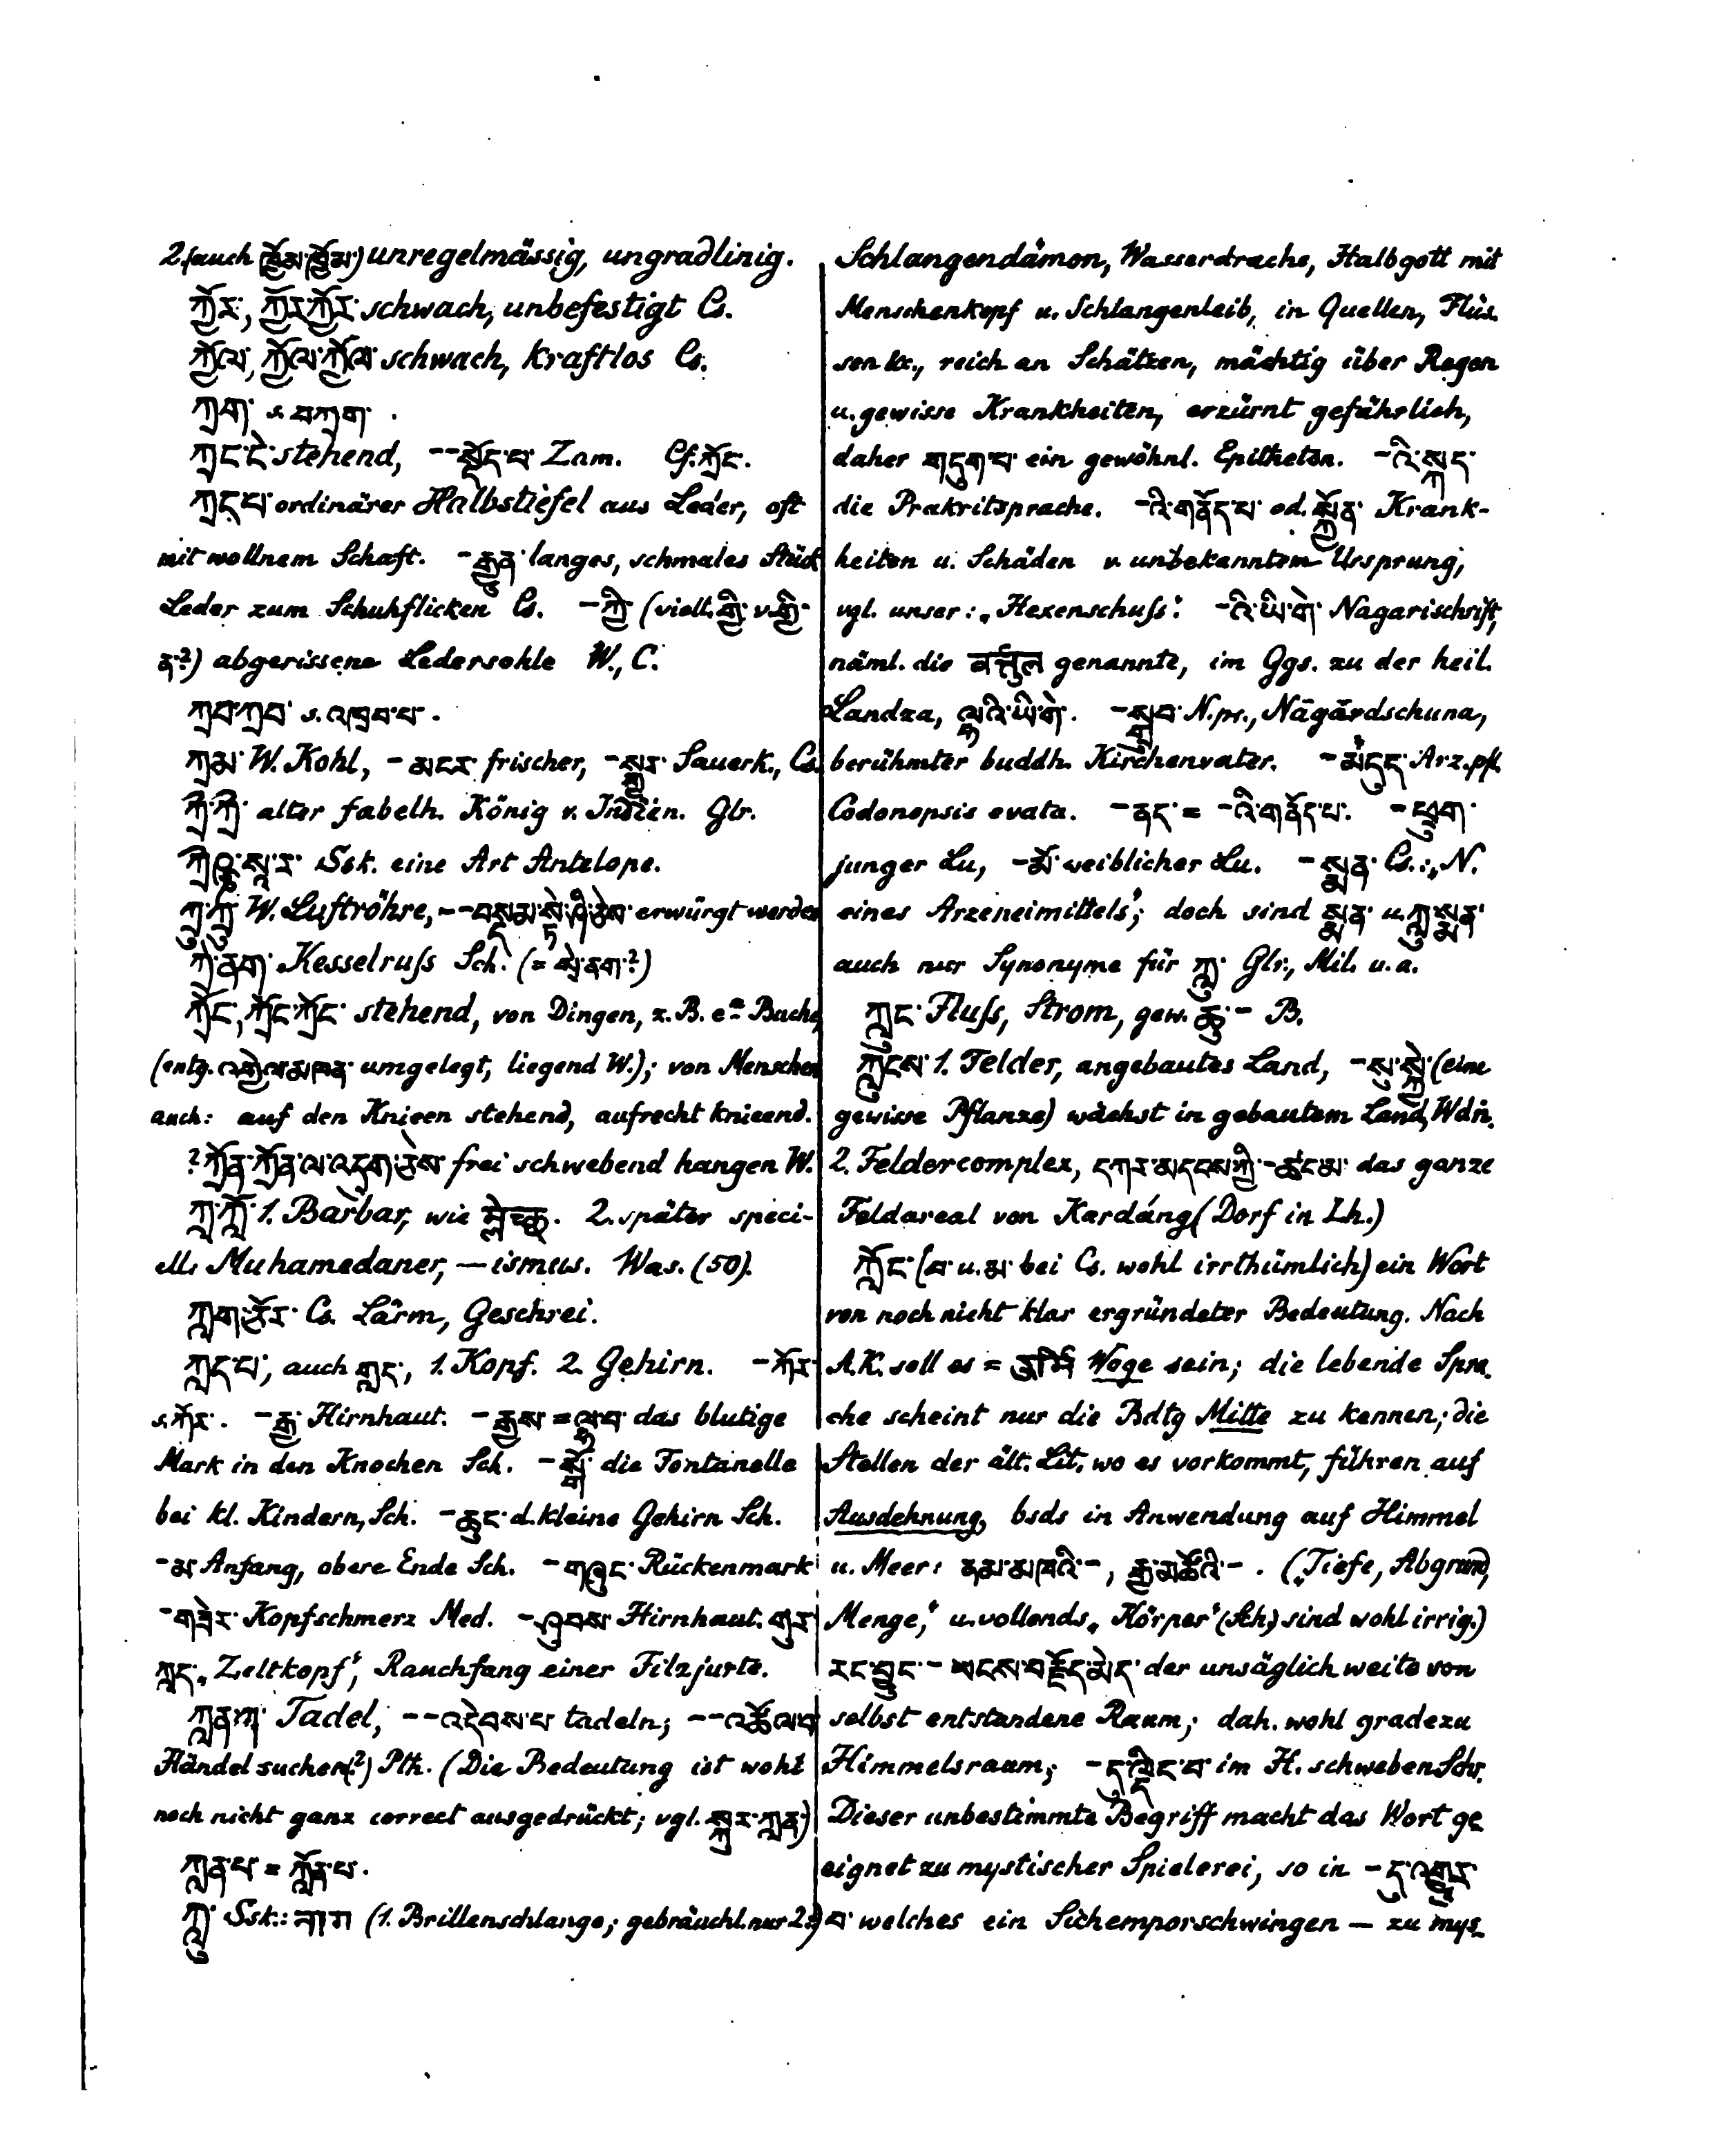 2. (auch ཁྱོམ་ཁྱོམ་) unregelmässig, ungradlinig.
ཀྱོར་, ཀྱོར་ཀྱོར་ schwach, unbefestigt Cs.
ཀྱོལ་, ཀྱོལ་ཀྱོལ་ schwach, kraftlos Cs.
ཀྲག་ s. བཀྲག་.
ཀྲང་ངེ་ stehend, --སྡོད་པ་ Zam. Cf. ཀྲོང་.
ཀྲད་པ་ ordinärer Halbstiefel aus Leder, oft
mit wollnem Schaft. -རྒྱུན་ langes, schmales Stück
Leder zum Schuhflicken Cs. -ཀྱི་ (viell. གྱི་ v. གྱེ-
ན་?) abgerissene Ledersohle W., C.
ཀྲབ་ཀྲབ་ s. འཁྲབ་པ་.
ཀྲམ་ W. Kohl, -མངར་ frischer, -སྐྱུར་ Sauerk., Cs.
ཀྲི་ཀྲི་ alter fabelh. König v. Indien. Glr.
ཀྲྀཥྞ་སཱ་ར་ Ssk. eine Art Antelope.
ཀྲུ་ཀྲུ་ W. Luftröhre, --བསྡམ་སྟེ་ཤི་ཅེས་ erwürgt werden
ཀྲེ་ནག་ Kesselruſs Sch. (= སྲེ་ནག་?)
ཀྲོང་, ཀྲོང་ཀྲོང་ stehend, von Dingen, z. B. e-m Buche,
(entg. འགྱེལ་མཁན་ umgelegt, liegend W.); von Menschen
auch: auf den Knieen stehend, aufrecht knieend.
? ཀྲོན་ཀྲོན་ལ་འདུག་ཅེས་ frei schwebend hangen W.
ཀླ་ཀློ་ 1. Barbar, wie म्लेच्छ. 2. später speci-
ell Muhamedaner, —ismus. Was. (50).
ཀླག་ཅོར་ Cs. Lärm, Geschrei.
ཀླད་པ་, auch གླད་, 1. Kopf. 2. Gehirn. -ཀོར་
s. ཀོར་. -རྒྱ་ Hirnhaut. -རྒྱས་ = ལྷབ་ das blutige
Mark in den Knochen Sch. -སྒོ་ die Fontanelle
bei kl. Kindern, Sch. -ཆུང་ d. kleine Gehirn Sch.
-མ་ Anfang, obere Ende Sch. -གཞུང་ Rückenmark
-གཟེར་ Kopfschmerz Med. -ཤུབས་ Hirnhaut. གུར་
ཀླད་ „Zeltkopf“, Rauchfang einer Filzjurte.
ཀླན་ཀ་ Tadel, --འདེབས་པ་ tadeln; --འཚོལ་བ་
Händel suchen(?) Pth. (Die Bedeutung ist wohl
noch nicht ganz correct ausgedrückt; vgl. སྐུར་ཀླན་)
ཀླན་པ་ = ཀློན་པ་.
ཀླུ་ Ssk.: नाग (1. Brillenschlange; gebräuchl. nur 2:)
Schlangendämon, Wasserdrache, Halbgott mit
Menschenkopf u. Schlangenleib, in Quellen, Flüs-
sen &c., reich an Schätzen, mächtig über Regen
u. gewisse Krankheiten, erzürnt gefährlich,
daher གདུག་པ་ ein gewöhnl. Epitheton. -འི་སྐད་
die Prakritsprache. -འི་གནོད་པ་ od. སྐྱོན་ Krank-
heiten u. Schäden v. unbekanntem Ursprung,
vgl. unser: „Hexenschuſs“. -འི་ཡི་གེ་ Nagarischrift,
näml. die वर्तुल genannte, im Ggs. zu der heil.
Landza, ལྷའི་ཡི་གེ་. -སྒྲུབ་ N. pr., Nāgārdschuna,
berühmter buddh. Kirchenvater. -མདུད་ Arz.pfl.
Codonopsis ovata. -ནད་ = -འི་གནོད་པ་. -ཕྲུག་
junger Lu, -མོ་ weiblicher Lu. -སྨན་ Cs.: „N.
eines Arzeneimittels“; doch sind སྨན་ u. ཀླུ་སྨན་
auch nur Synonyme für ཀླུ་ Glr., Mil. u. a.
ཀླུང་ Fluſs, Strom, gew. ཆུ་- B.
ཀླུངས་ 1. Felder, angebautes Land, -སུ་སྐྱེ་ (eine
gewisse Pflanze) wächst in gebautem Land, Wdṅ.
2. Feldercomplex, དཀར་མདངས་ཀྱི་-ཚང་མ་ das ganze
Feldareal von Kardáng (Dorf in Lh.)
ཀློང་ (བ་ u. མ་ bei Cs. wohl irrthümlich) ein Wort
von noch nicht klar ergründeter Bedeutung. Nach
A.K. soll es = ऊर्मि Woge sein; die lebende Spra-
che scheint nur die Bdtg Mitte zu kennen; die
Stellen der ält. Lit. wo es vorkommt, führen auf
Ausdehnung, bsds in Anwendung auf Himmel
u. Meer: ནམ་མཁའི་-, རྒྱ་མཚོའི་-. („Tiefe, Abgrund,
Menge,“ u. vollends „Körper“ (Sch.) sind wohl irrig.)
རང་བྱུང་-ཡངས་བརྗོད་མེད་ der unsäglich weite von
selbst entstandene Raum; dah. wohl gradezu
Himmelsraum; -དུ་ལྡིང་བ་ im H. schweben Schr.
Dieser unbestimmte Begriff macht das Wort ge
eignet zu mystischer Spielerei, so in -དུ་འགྱུར་
བ་ welches ein Sichemporschwingen — zu mys-